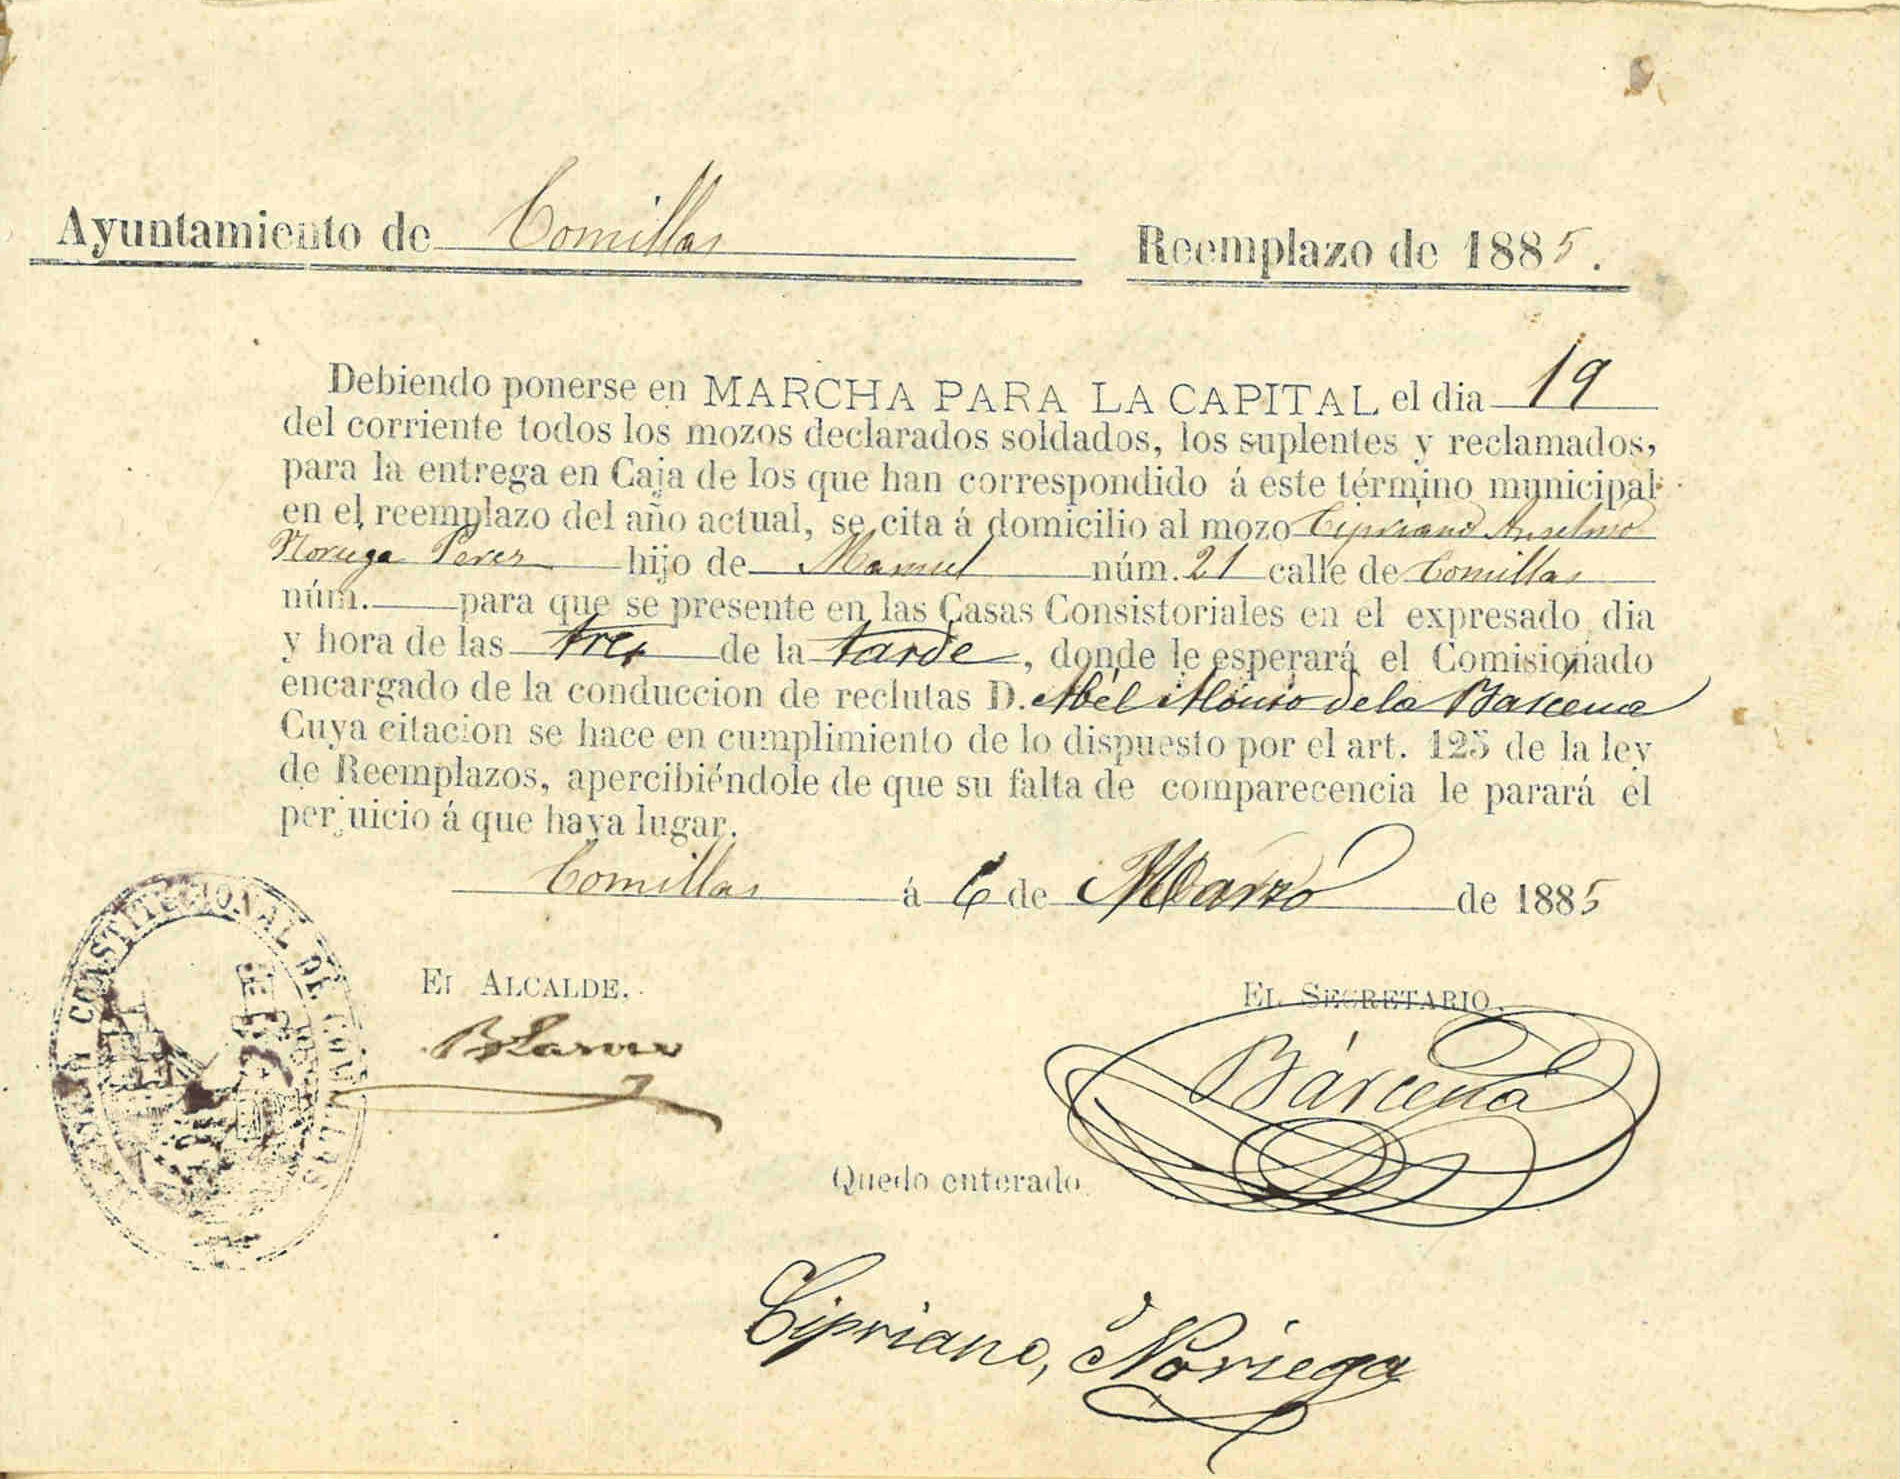 Ayuntamiento de Comillas Reemplazo de 1885.
Debiendo ponerse en MARCHA PARA LA CAPITAL el dia 19
del corriente todos los mozos declarados soldados, los suplentes y reclamados,
para la entrega en Caja de los que han correspondido á este término municipal
en el reemplazo del año actual, se cita á domicilio al mozo Cipriano Anselmo
Noriega Perez hijo de Manuel núm. 21 calle de Comillas
núm. para que se presente en las Casas Consistoriales en el expresado dia
y hora de las tres de la tarde, donde le esperará el Comisionado
encargado de la conduccion de reclutas D. Abél Alonso de la Barcena
Cuya citacion se hace en cumplimiento de lo dispuesto por el art. 125 de la ley
de Reemplazos, apercibiéndole de que su falta de comparecencia le parará el
perjuicio á que haya lugar.
Comillas á 6 de Marzo de 1885
CONSTITUCIONAL DE COMILLAS
EL ALCALDE.
EL SECRETARIO.
Bárcena
Quedo enterado
Cipriano, Noriega